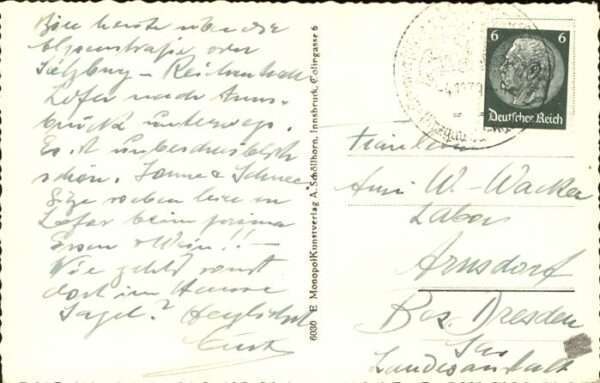 Bin heute über die
Alpenstraße oder
Salzburg – Reichenhall
Lofer nach Inns-
bruck unterwegs.
Es ist unbeschreiblich
schön. Sonne & Schnee
Sitze soeben hier in
Lofer beim prima
Essen & Wein!! –
Wie geht's sonst
dort im Hause
Herzlichst
6030 E MonopolKunstverlag A. Schöllhorn, Innsbruck, Colingasse 6
6 6
Deutsches Reich
Fräulein
W. Wacker
Labor
Arnsdorf
Bez. Dresden
Sa.
Landesanstalt